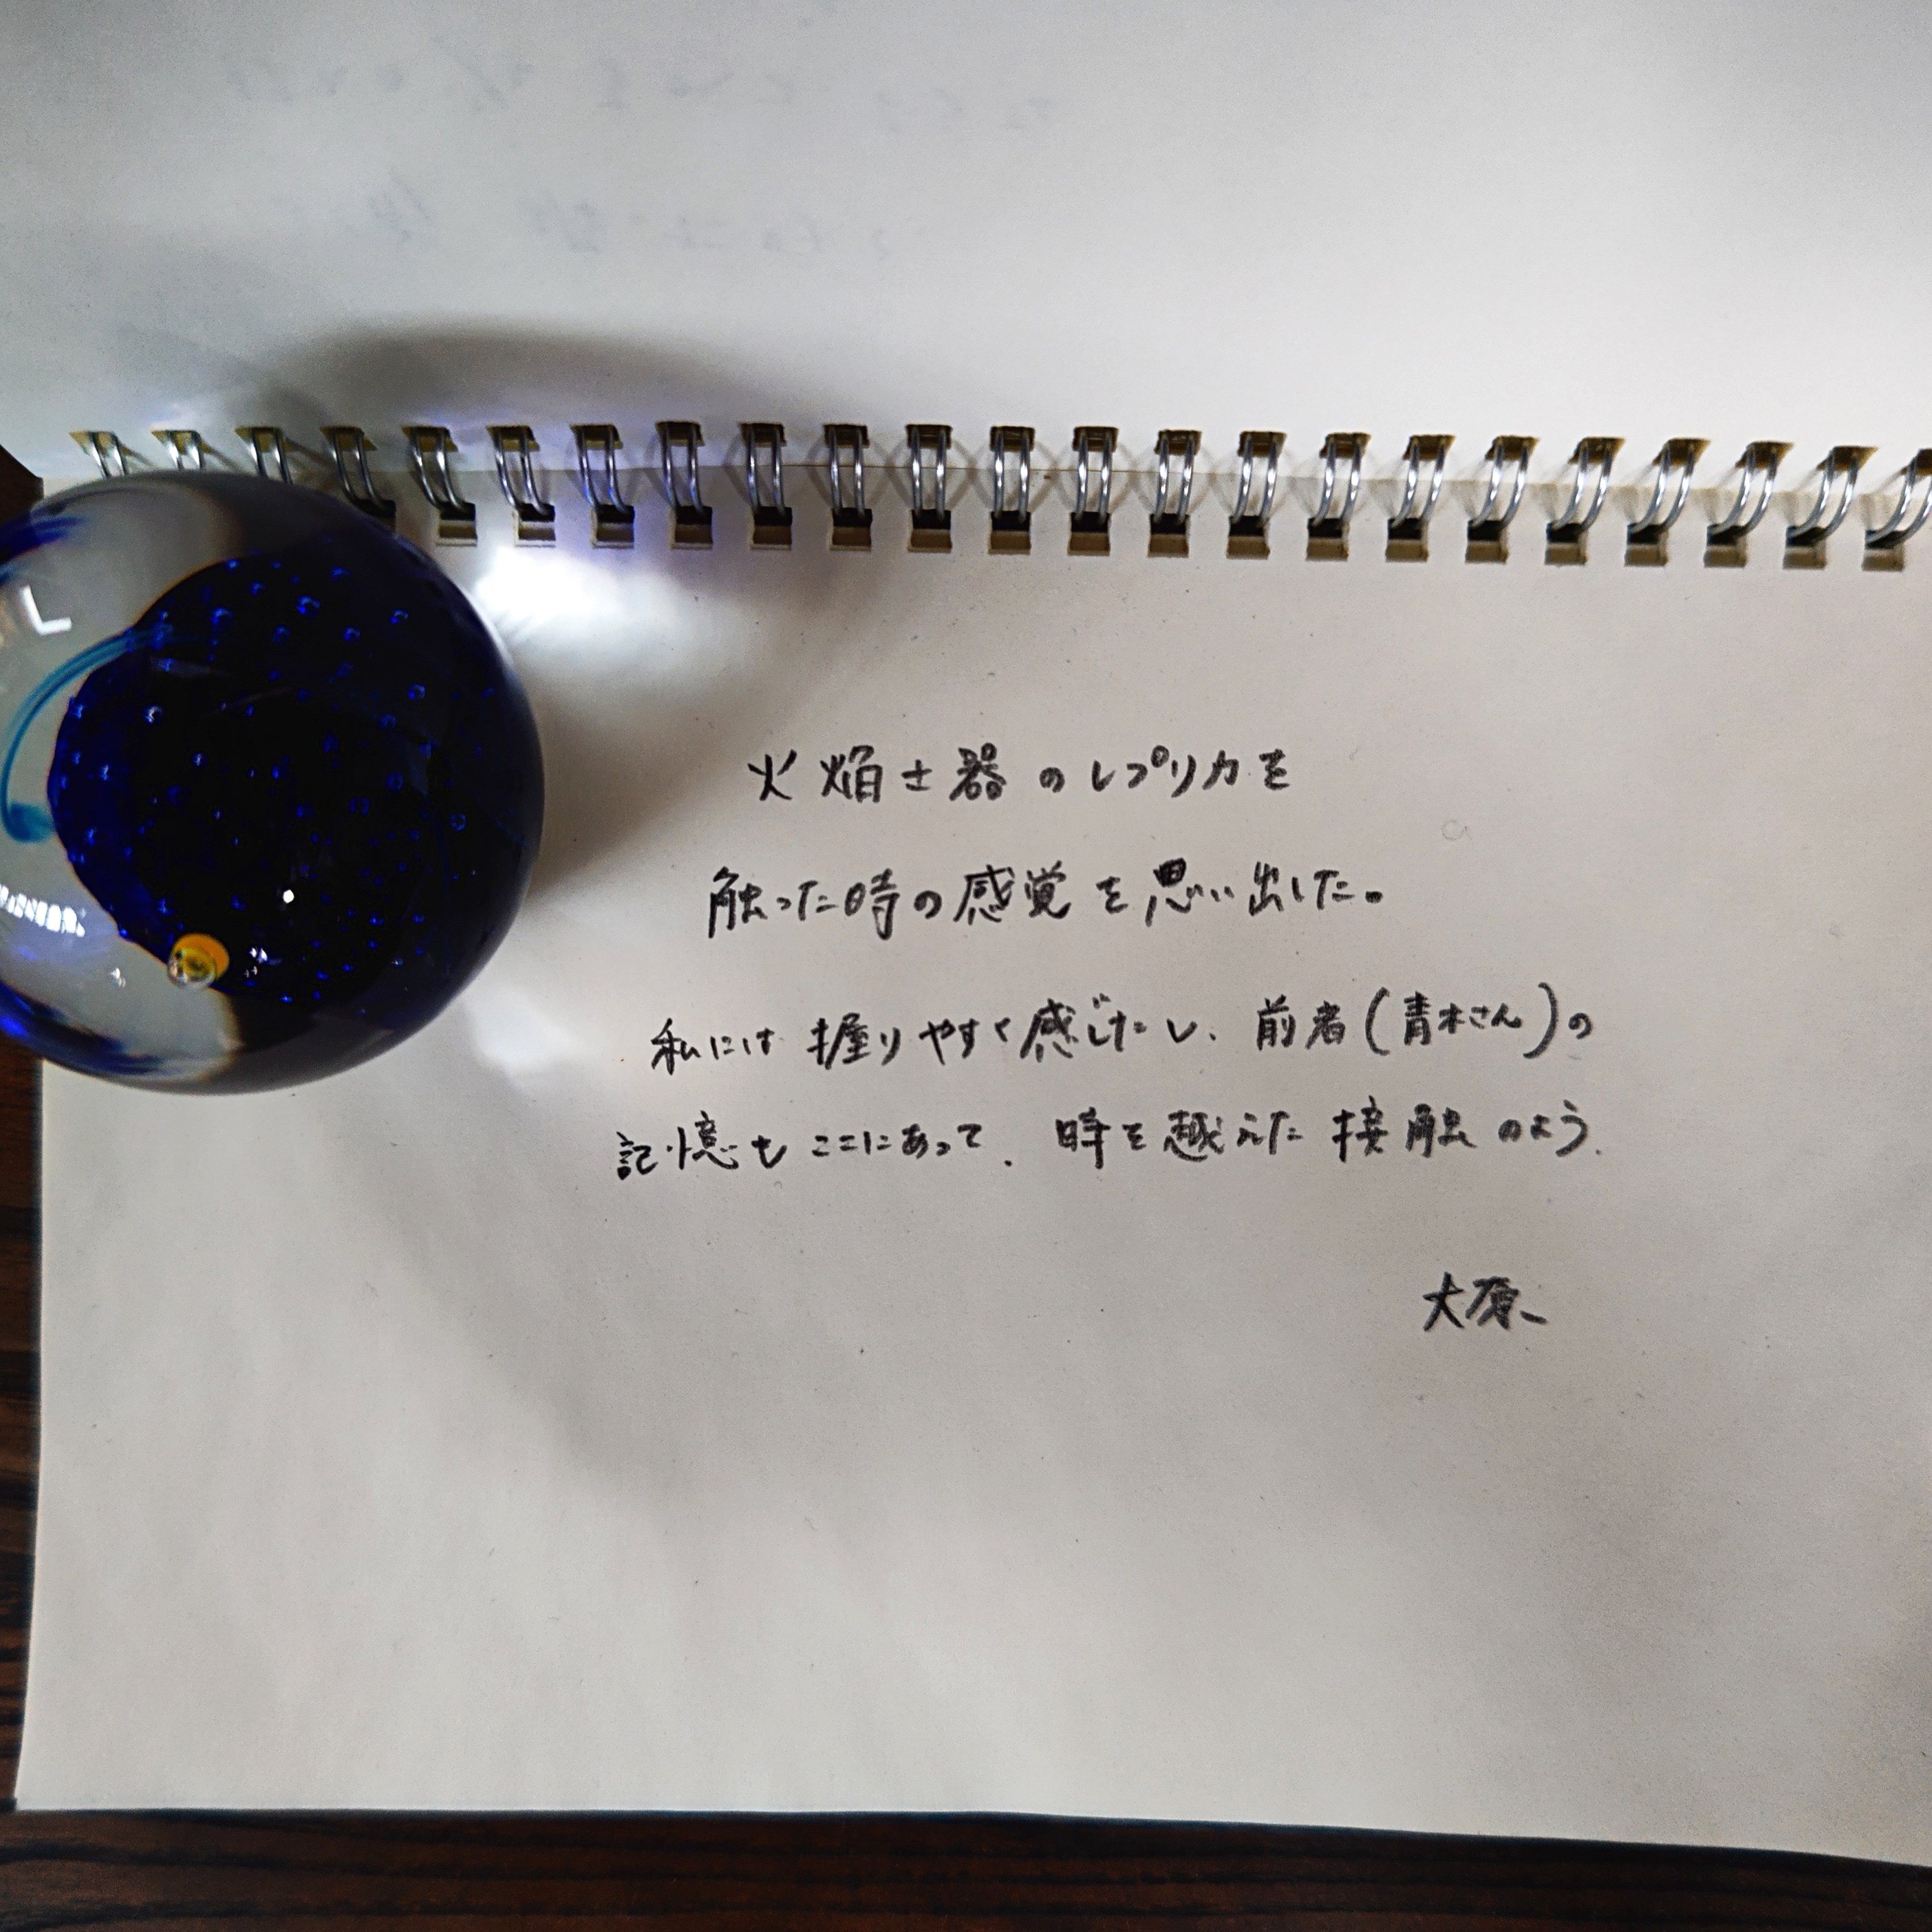 火焔土器のレプリカを
触った時の感覚を思い出した。
私には握りやすく感じたし、前者(青木さん)の
記憶もここにあって、時を越えた接触のよう.
大原